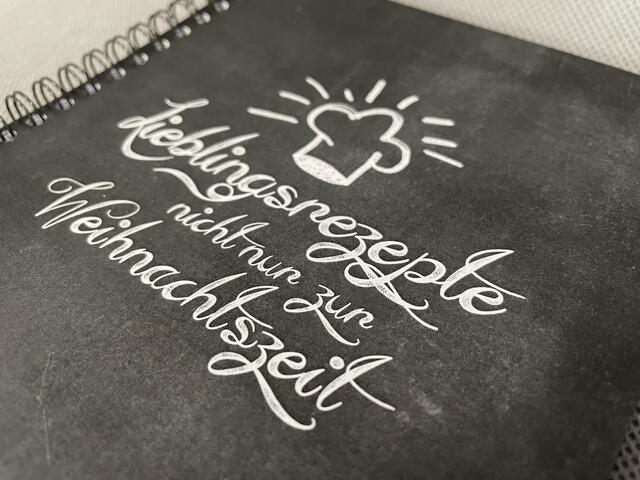 Lieblingsrezepte
nicht nur zur
Weihnachtszeit